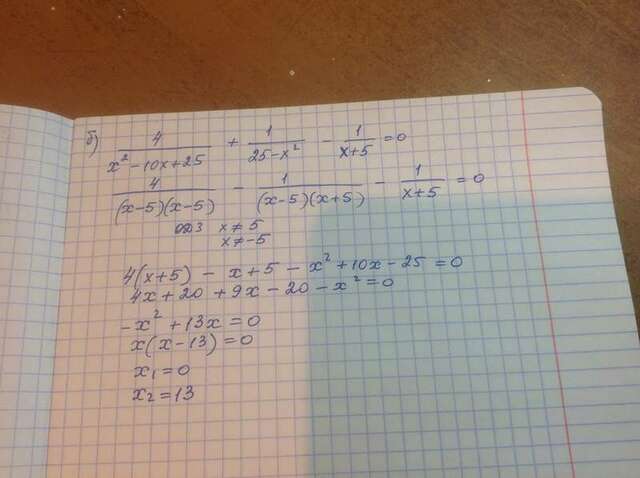 б) 4/(x² - 10x + 25) + 1/(25 - x²) - 1/(x + 5) = 0
4/((x-5)(x-5)) - 1/((x-5)(x+5)) - 1/(x+5) = 0
ОДЗ x ≠ 5
x ≠ -5
4(x+5) - x + 5 - x² + 10x - 25 = 0
4x + 20 + 9x - 20 - x² = 0
-x² + 13x = 0
x(x-13) = 0
x₁ = 0
x₂ = 13